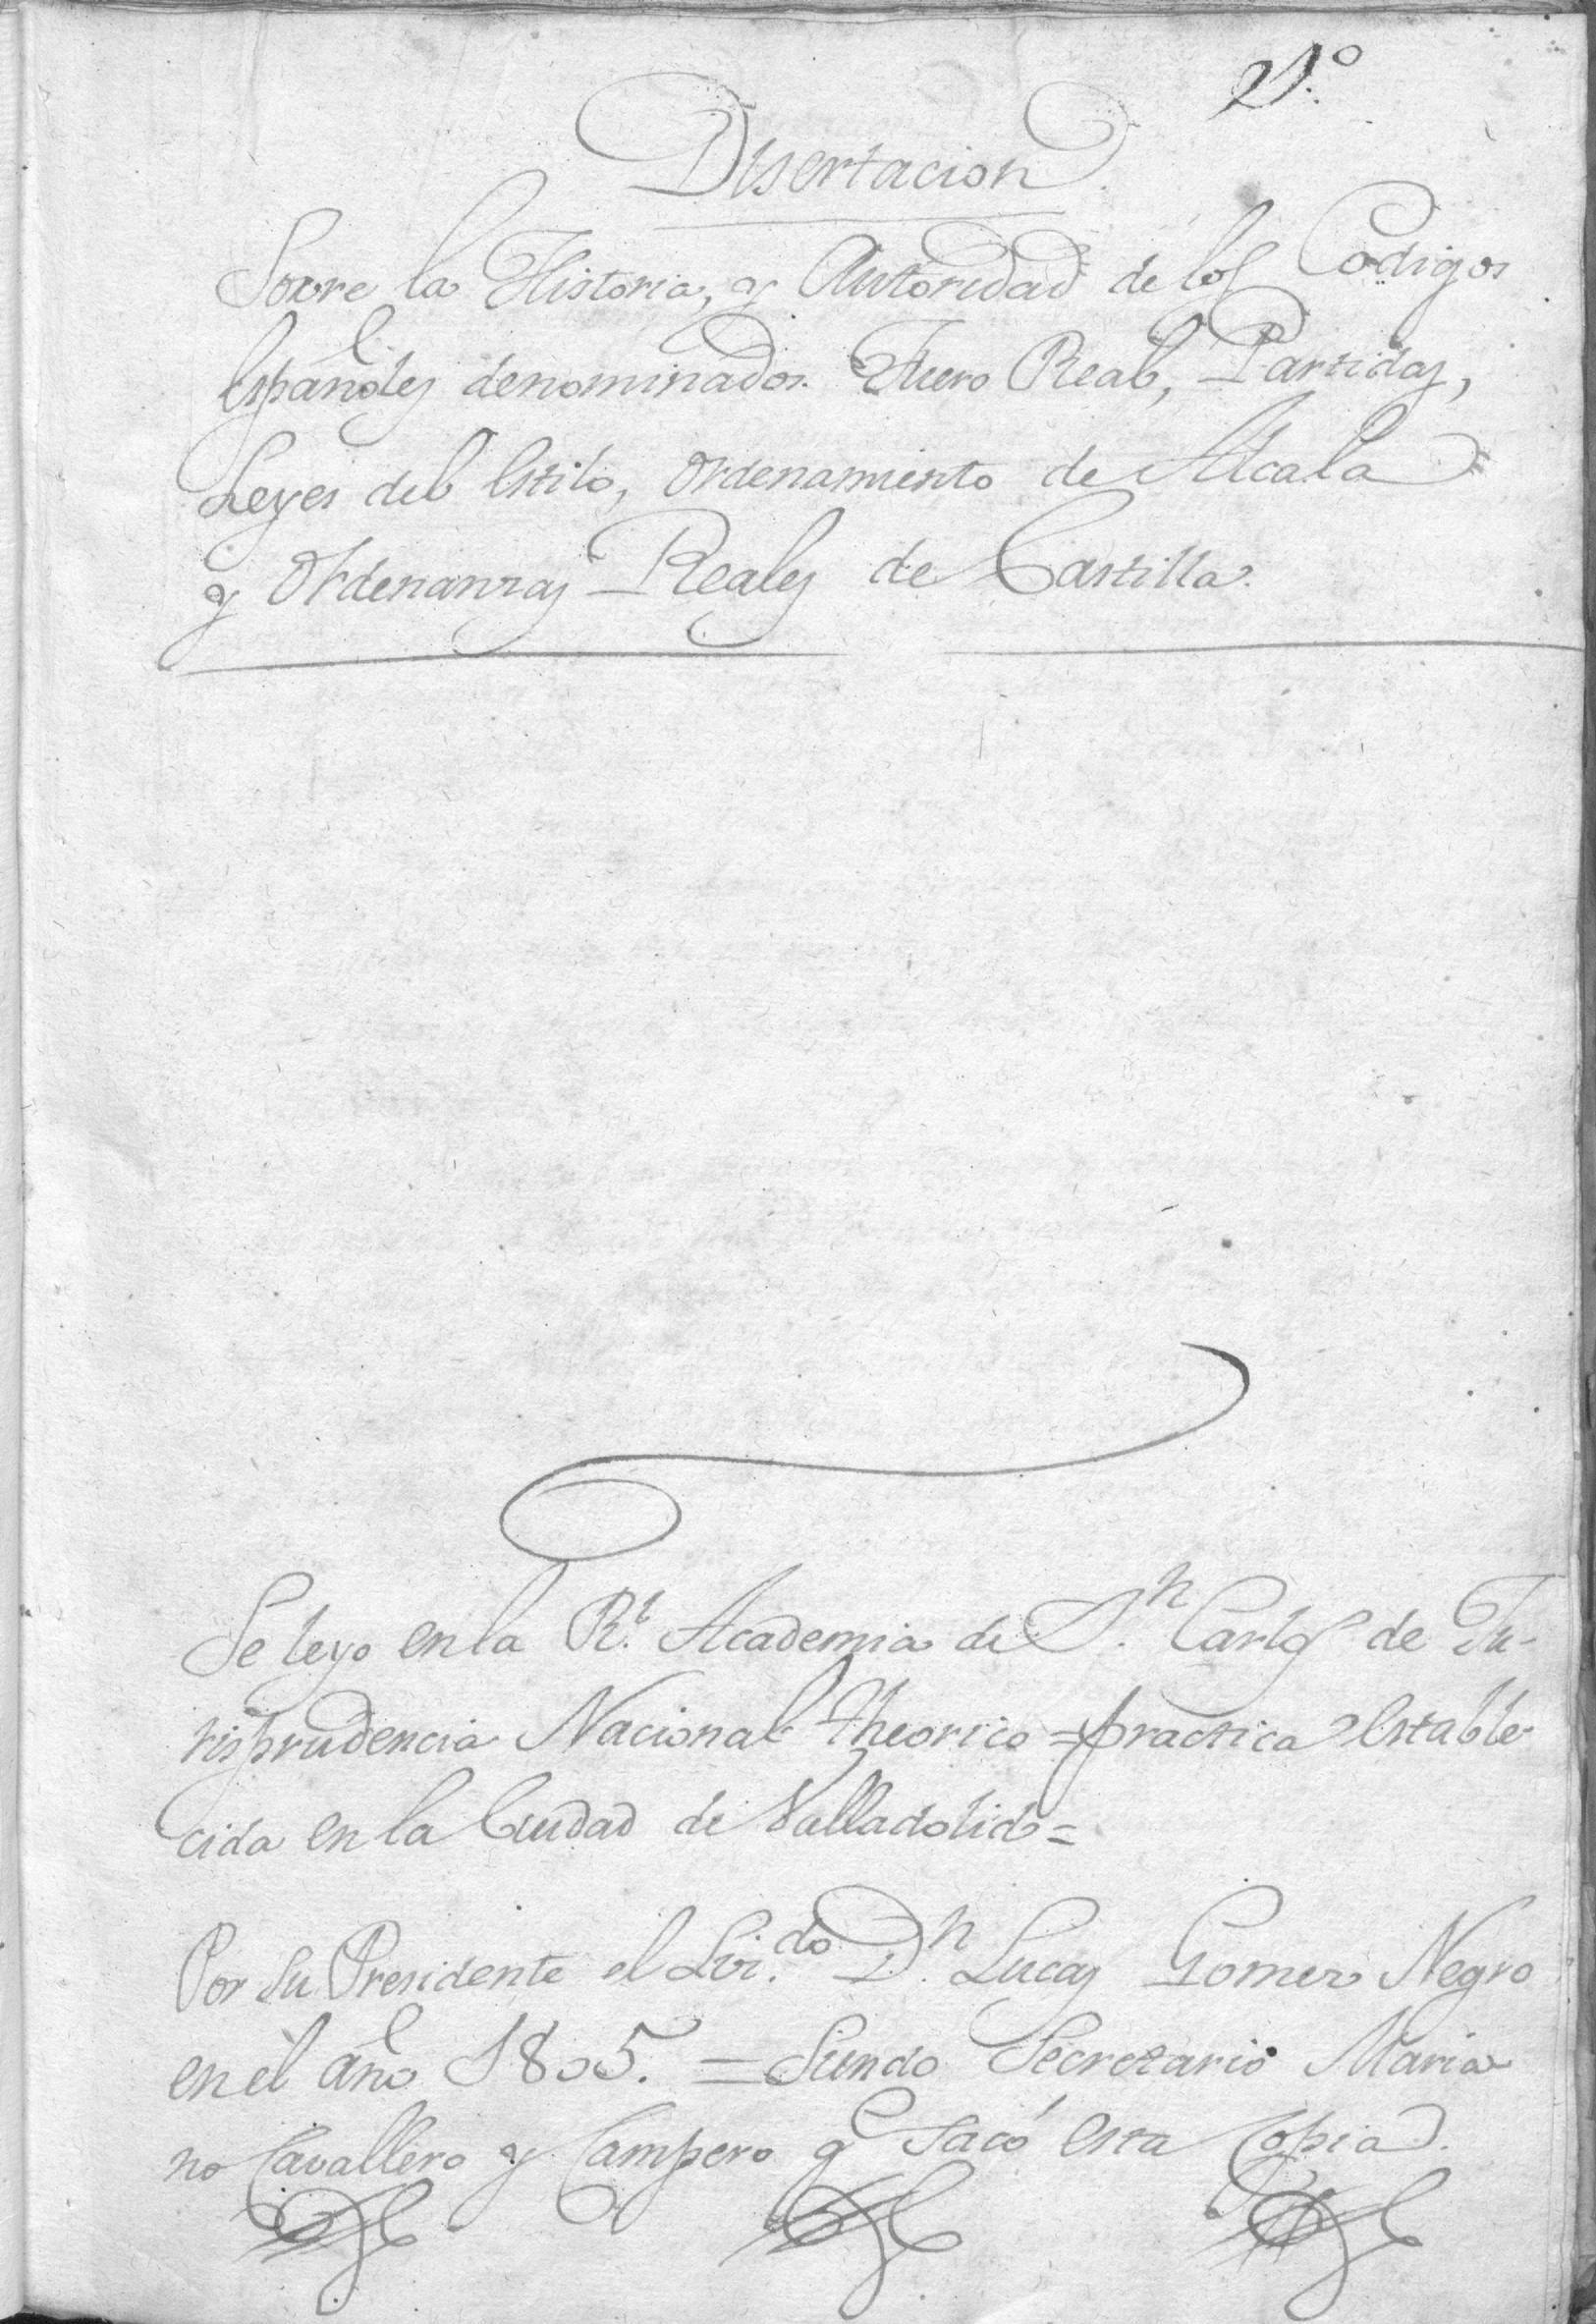 Disertacion.
Sovre la Historia, y Autoridad de los Codigos
españoles denominados Fuero Real, Partidas,
Leyes del estilo, ordenamiento de Alcala
y ordenanzas Reales de Castilla.
Se leyo en la Rl. Academia de Sn. Carlos de Ju-
risprudencia Nacional theorico=practica estable-
cida en la Ciudad de Valladolid=
Por su Presidente el Lizdo. Dn. Lucas Gomez Negro
en el año 1805. = Siendo Secretario Maria
no Cavallero y Campero qe sacó esta copia.